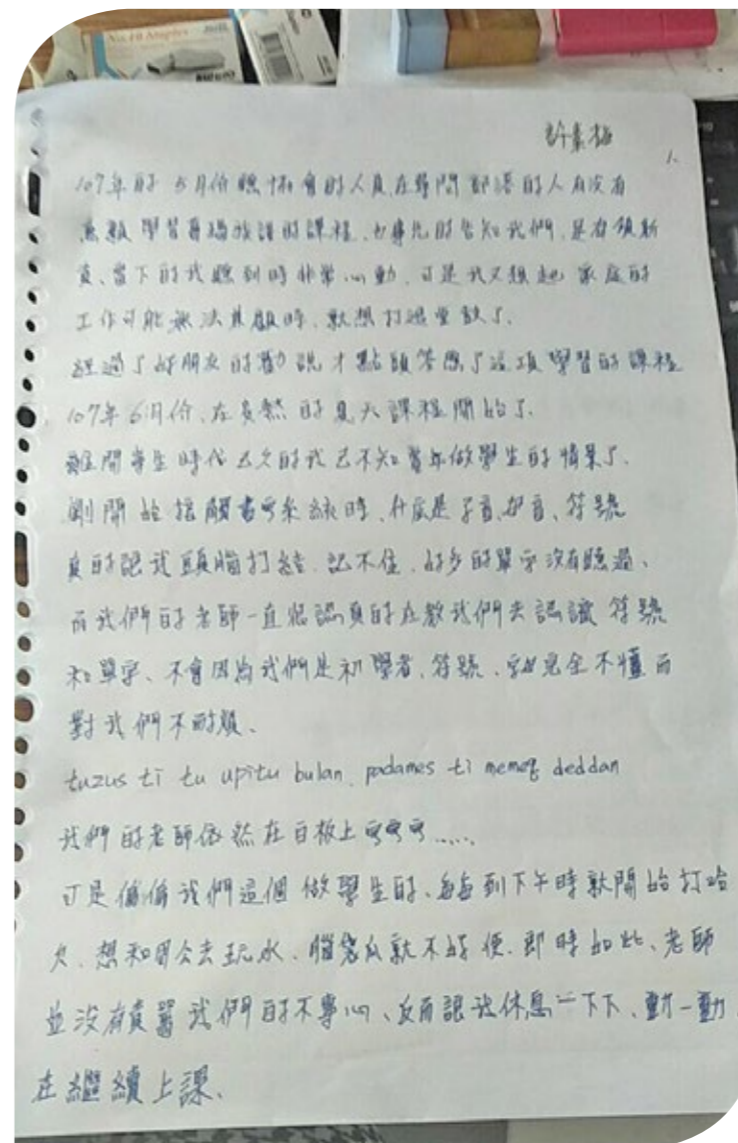 No.10 Staples
許素梅
1.
107年的 5月份聽協會的人員在尋問 部落的人有沒有
意願 學習專婦族語的課程、也事先的告知我們、是有領薪
資、當下的我聽到時非常心動、可是我又想起 家庭的
工作可能無法兼顧時、就想打退堂鼓了、
經過了好朋友的勸說才點頭答應了這項學習的課程
107年6月份、在炎熱的夏天課程開始了、
離開學生時代已久的我已不知當年做學生的情景了、
剛開始接觸書寫系統時、什麼是子音、母音、符號
真的讓我頭腦打結、記不住、好多的單字沒有聽過、
而我們的老師一直很認真的在教我們去認識 符號
和單字、不會因為我們是初學者、符號、完全不懂而
對我們不耐煩、
tuzus ti tu upitu bulan, padames ti memeq deddan
我們的老師依然在白板上寫寫寫.....
可是偏偏我們這個做學生的、每每到下午時就開始打哈
欠、想和周公去玩水、腦袋瓜就不好使、即時如此、老師
並沒有責罵我們的不專心、反而讓我休息一下下、動一動
在繼續上課、